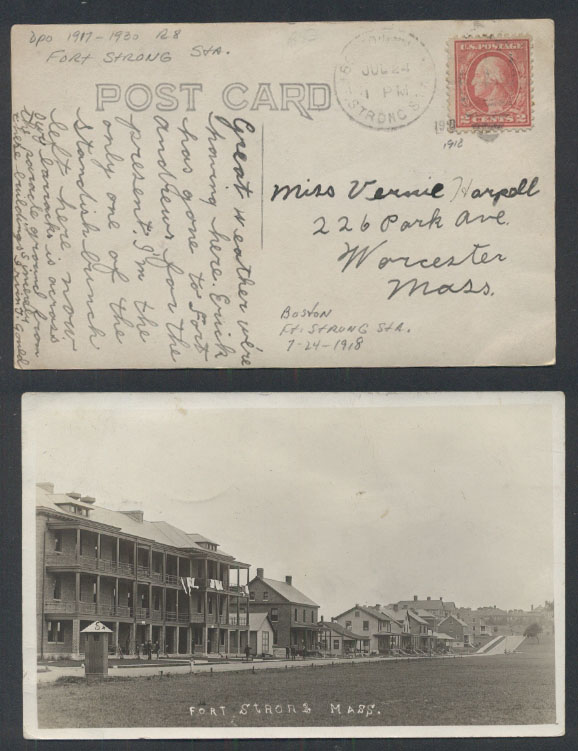 Dpo 1917-1930 R8
FORT STRONG STA.
POST CARD
JUL 24
1 PM
STRONG STA
U.S. POSTAGE
2 CENTS 2
1918
Miss Vernie Harpell
226 Park Ave.
Worcester
Mass.
BOSTON
Ft. STRONG STA.
7-24-1918
Great weather we're
having here.
has gone to Fort
Andrews for the
present. I'm the
only one of the
Standish bunch
left here now.
Our barracks is across
the parade ground from
these buildings. Sincerely
Gould
FORT STRONG MASS.